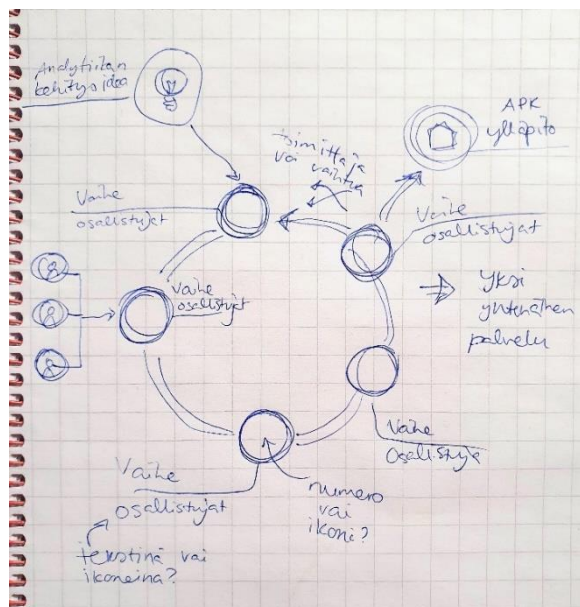 Analytiikan
kehitysidea
APK
ylläpito
toimittaja
voi vaihtua
Vaihe
osallistujat
Vaihe
osallistujat
Vaihe
osallistujat
Yksi
yhtenäinen
palvelu
Vaihe
osallistuja
Vaihe
osallistujat
numero
vai
ikoni?
tekstinä vai
ikoneina?